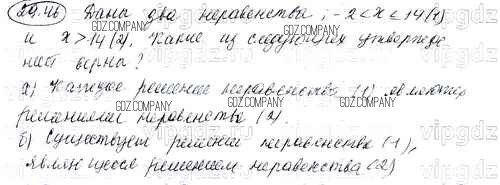 29.46 Даны два неравенства; -2<x≤14 (1)
и x>14 (2). Какие из следующих утвержде
ний верны?
GDZ.COMPANY GDZ.COMPANY GDZ.COMPANY
а) Каждое решение неравенства (1) является
GDZ.COMPANY GDZ.COMPANY GDZ.COMPANY
решением неравенства (2).
б) Существуют решения неравенства (1),
являющиеся решением неравенства (2)
vipgdz vipgdz vipgdz